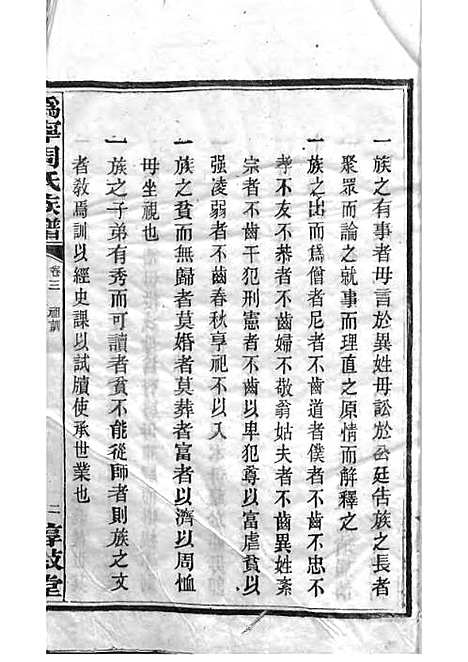 一族之有事者毋言於異姓毋訟於公廷告族之長者
聚眾而論之就事而理直之原情而解釋之
一族之出而爲僧者尼者不齒道者僕者不齒不忠不
孝不友不恭者不齒婦不敬翁姑夫者不齒異姓紊
宗者不齒干犯刑憲者不齒以卑犯尊以富虐貧以
强凌弱者不齒春秋享祀不以入
一族之貧而無歸者莫婚者莫葬者富者以濟以周恤
毋坐視也
一族之子弟有秀而可讀者貧不能從師者則族之文
者教焉訓以經史課以試牘使承世業也
潙寧周氏族譜
卷三
祖訓
二